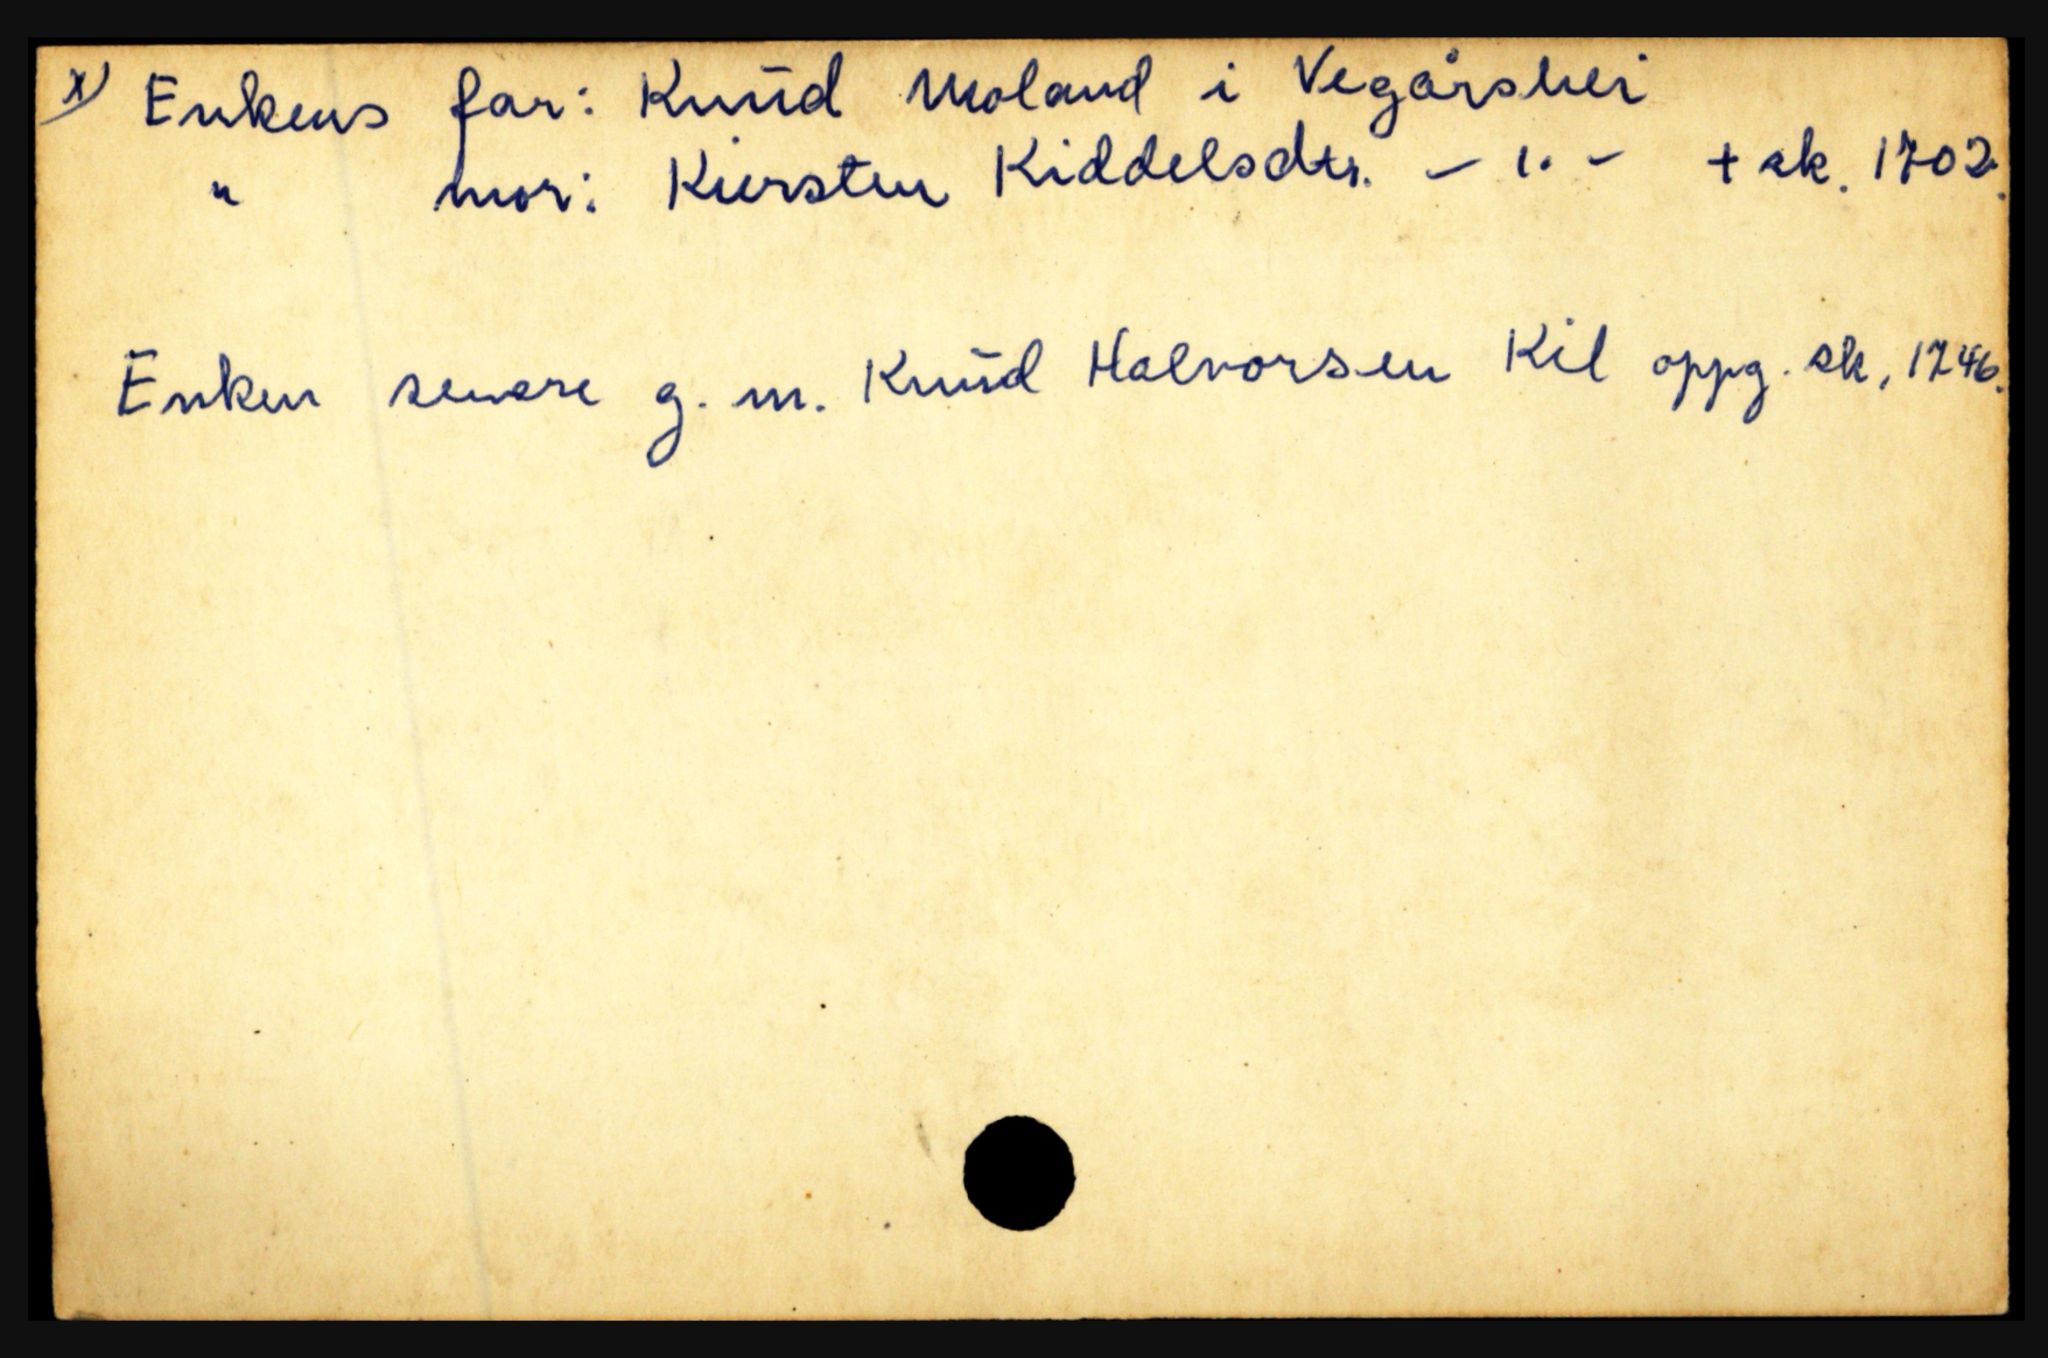 x) Enkens far: Knud Moland i Vegårshei
" mor: Kiersten Kiddelsdtr. - " - + sk. 1702.
Enken senere g. m. Knud Halvorsen Kil oppg. sk, 1746.